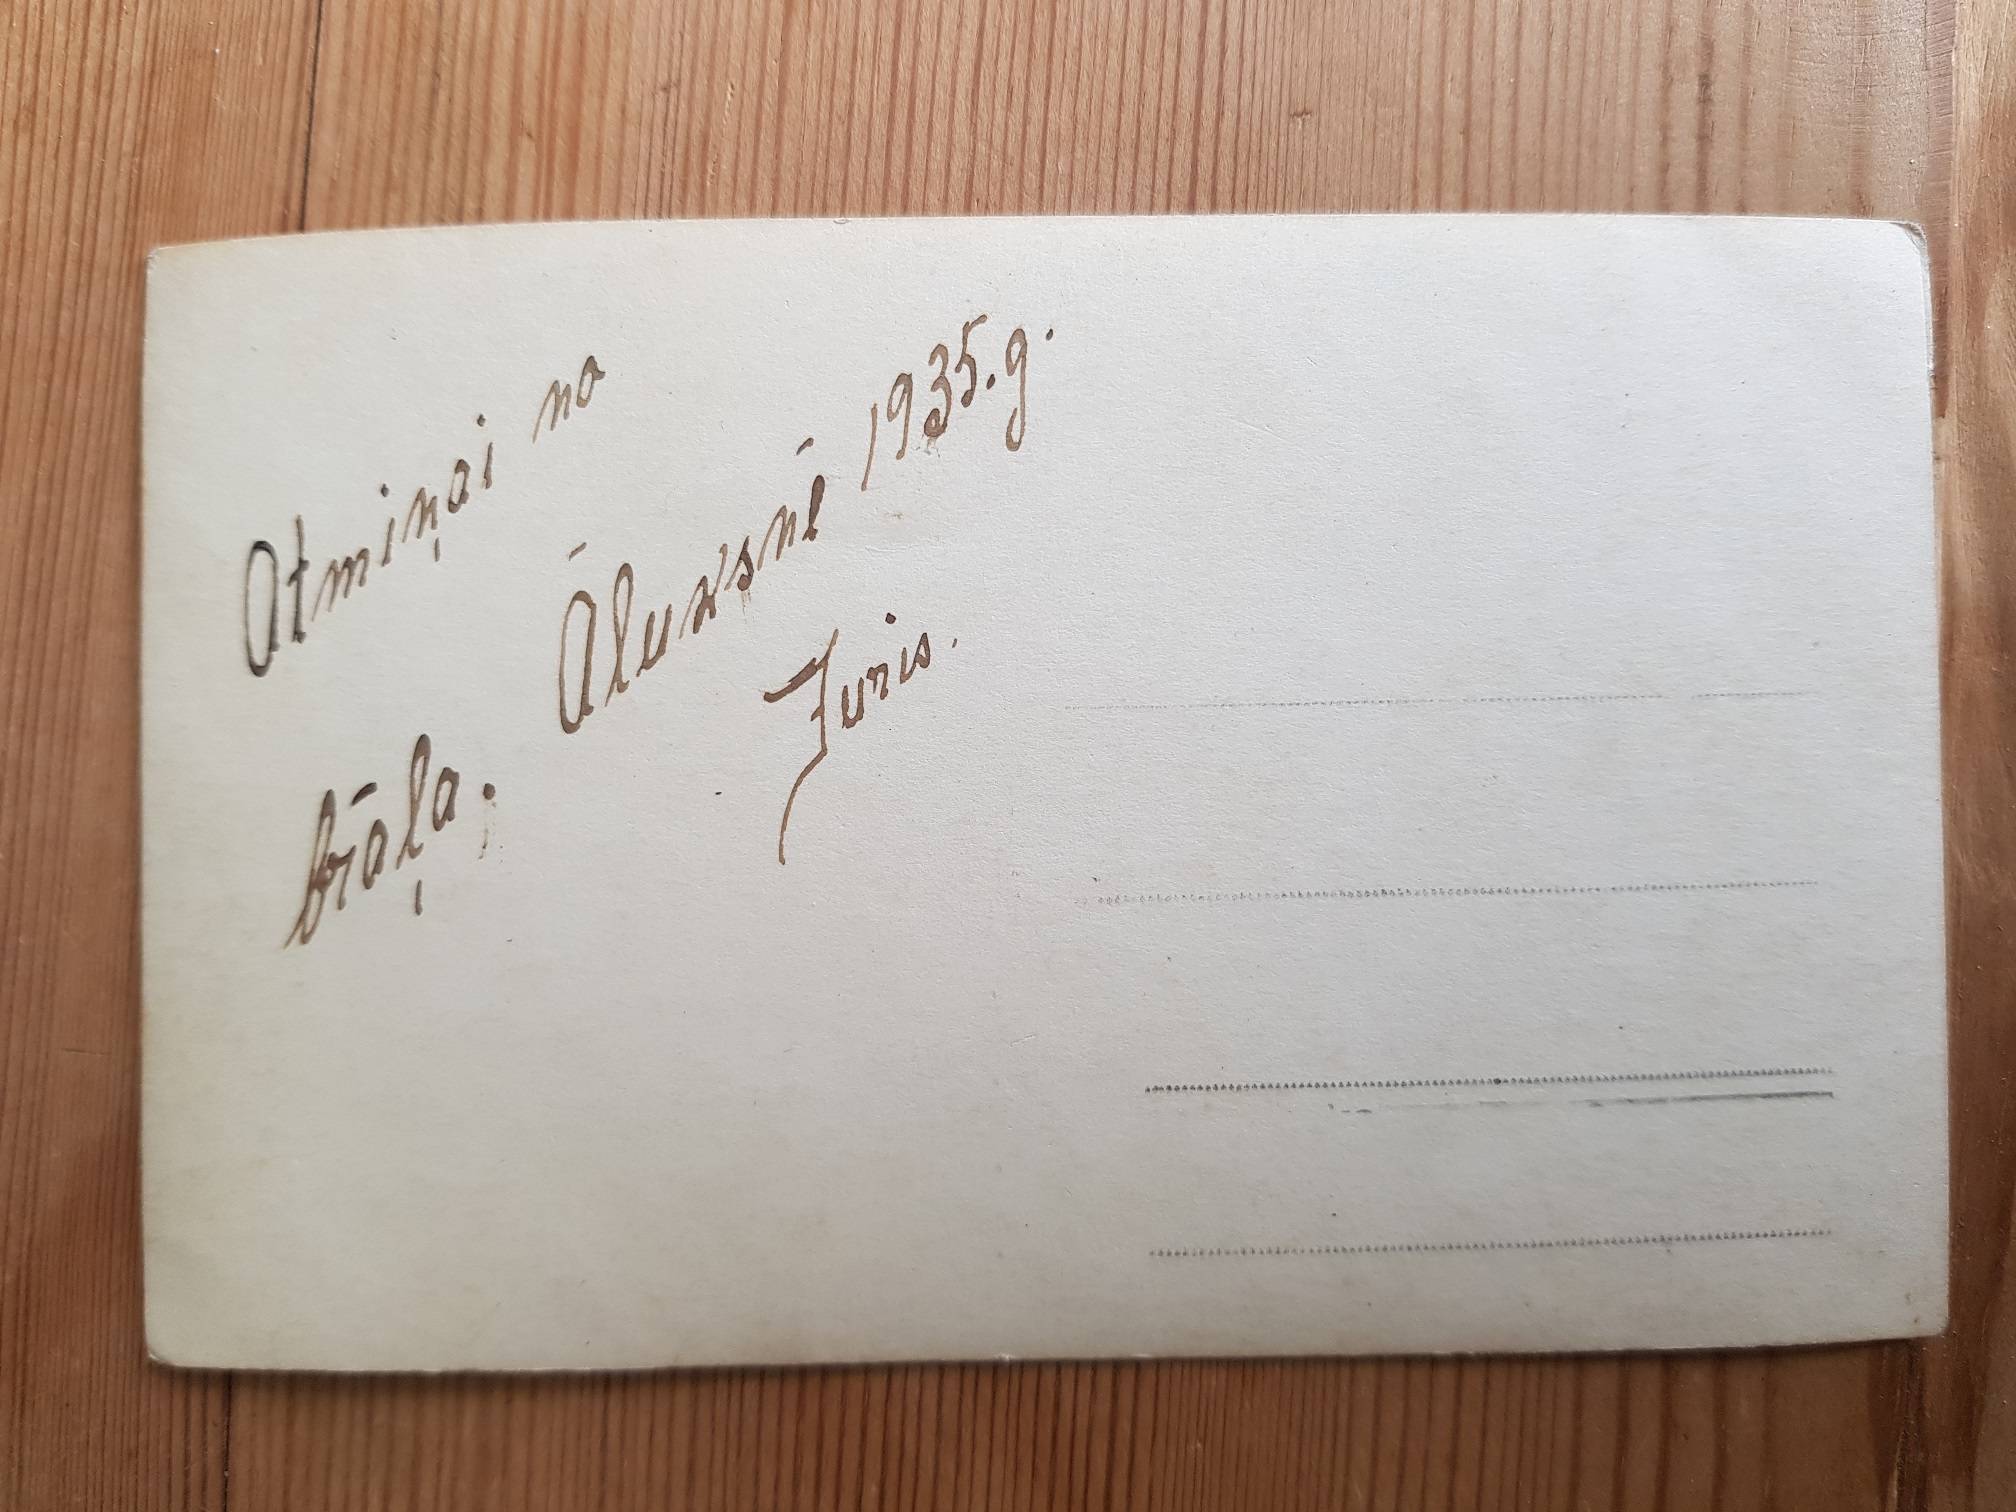 Atmiņai no
brāļa.
Āluksnē 1935.g.
Juris.